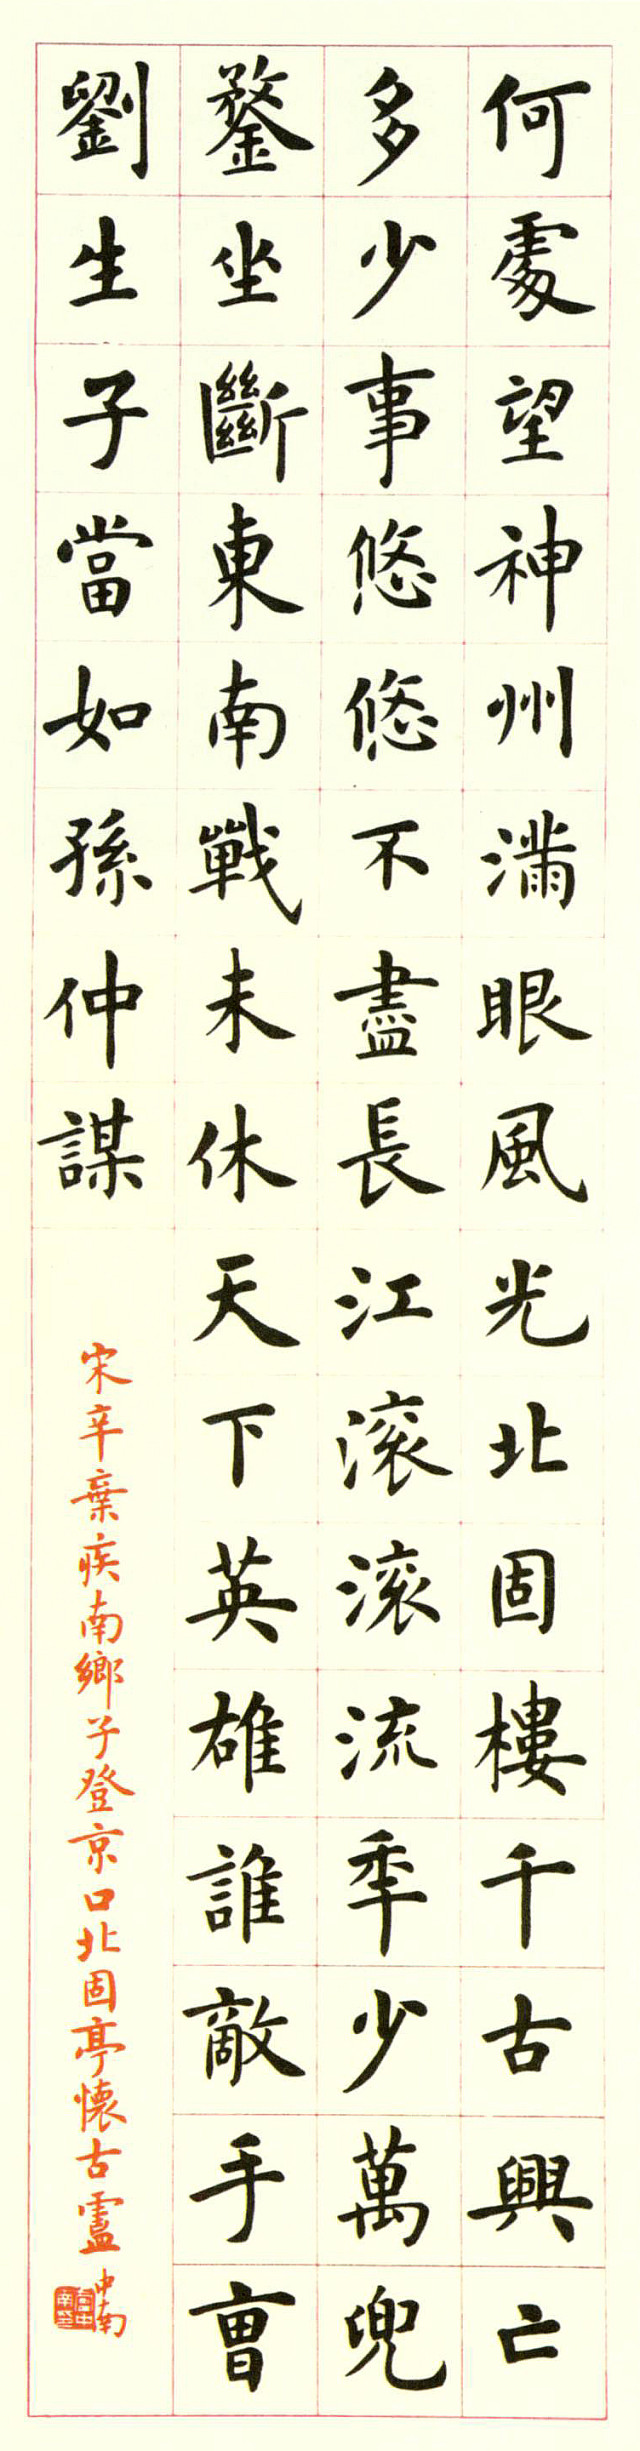 何處望神州滿眼風光北固樓千古興亡
多少事悠悠不盡長江滾滾流年少萬兜
鍪坐斷東南戰未休天下英雄誰敵手曹
劉生子當如孫仲謀
宋辛棄疾南鄉子登京口北固亭懷古盧中南